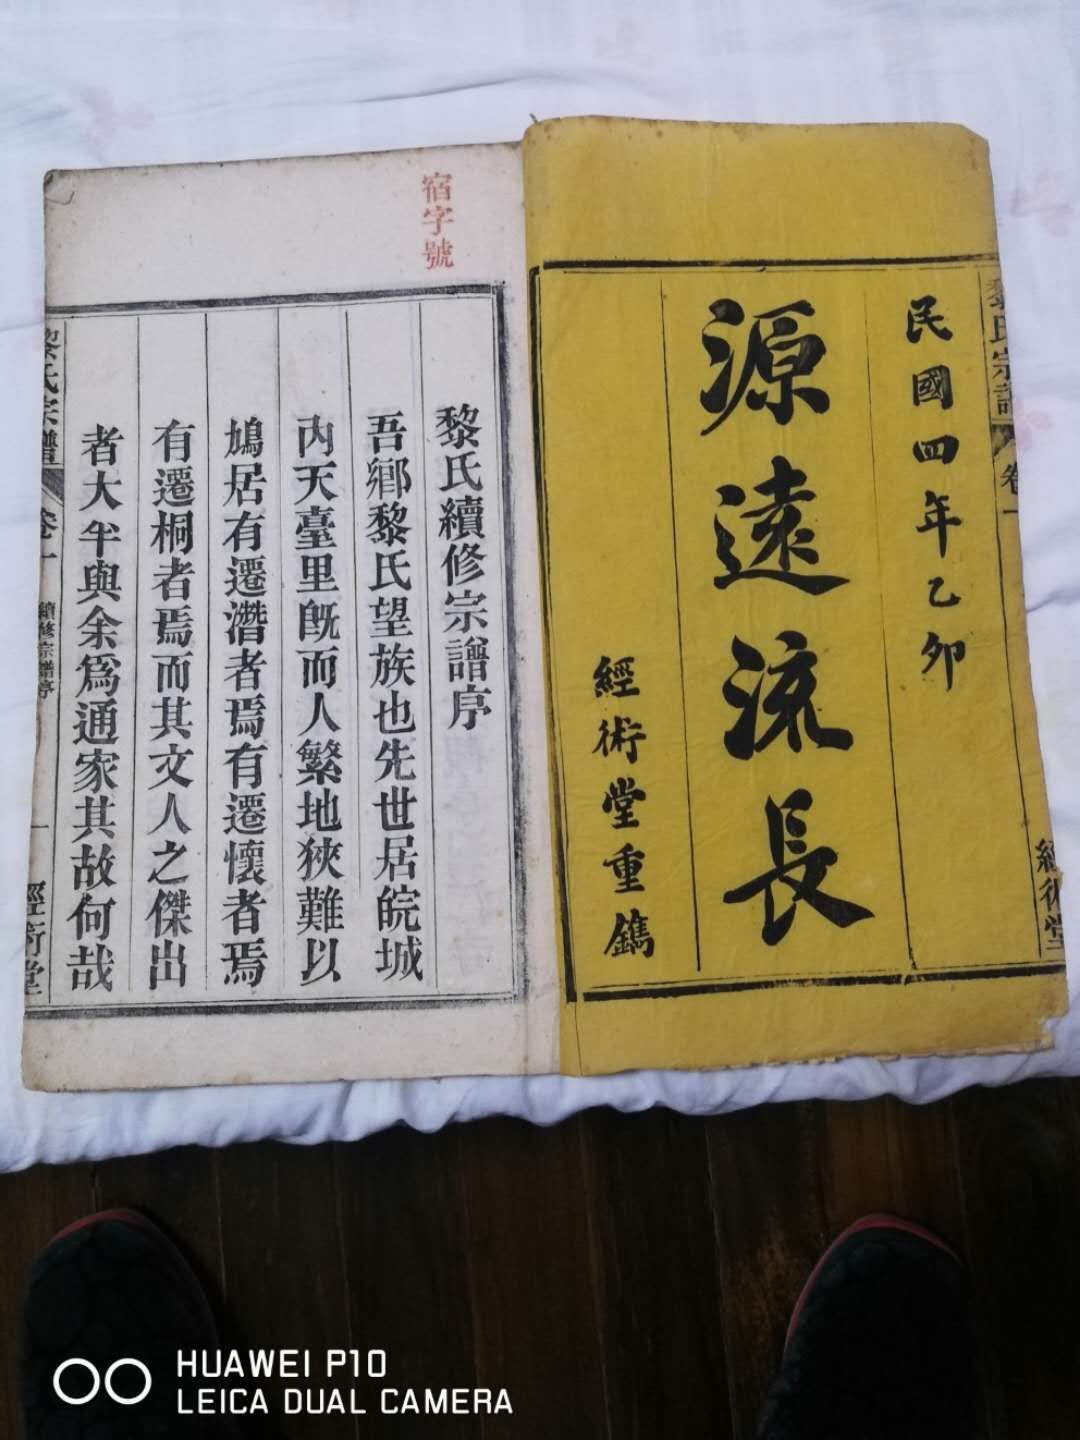 民國四年乙卯
源遠流長
經術堂重鐫
黎氏宗譜
卷一
經術堂
宿字號
黎氏續修宗譜序
吾鄉黎氏望族也先世居皖城
內天臺里既而人繁地狹難以
鳩居有遷潛者焉有遷懷者焉
有遷桐者焉而其文人之傑出
者大半與余為通家其故何哉
黎氏宗譜
卷一
續修宗譜序
一
經術堂
HUAWEI P10
LEICA DUAL CAMERA